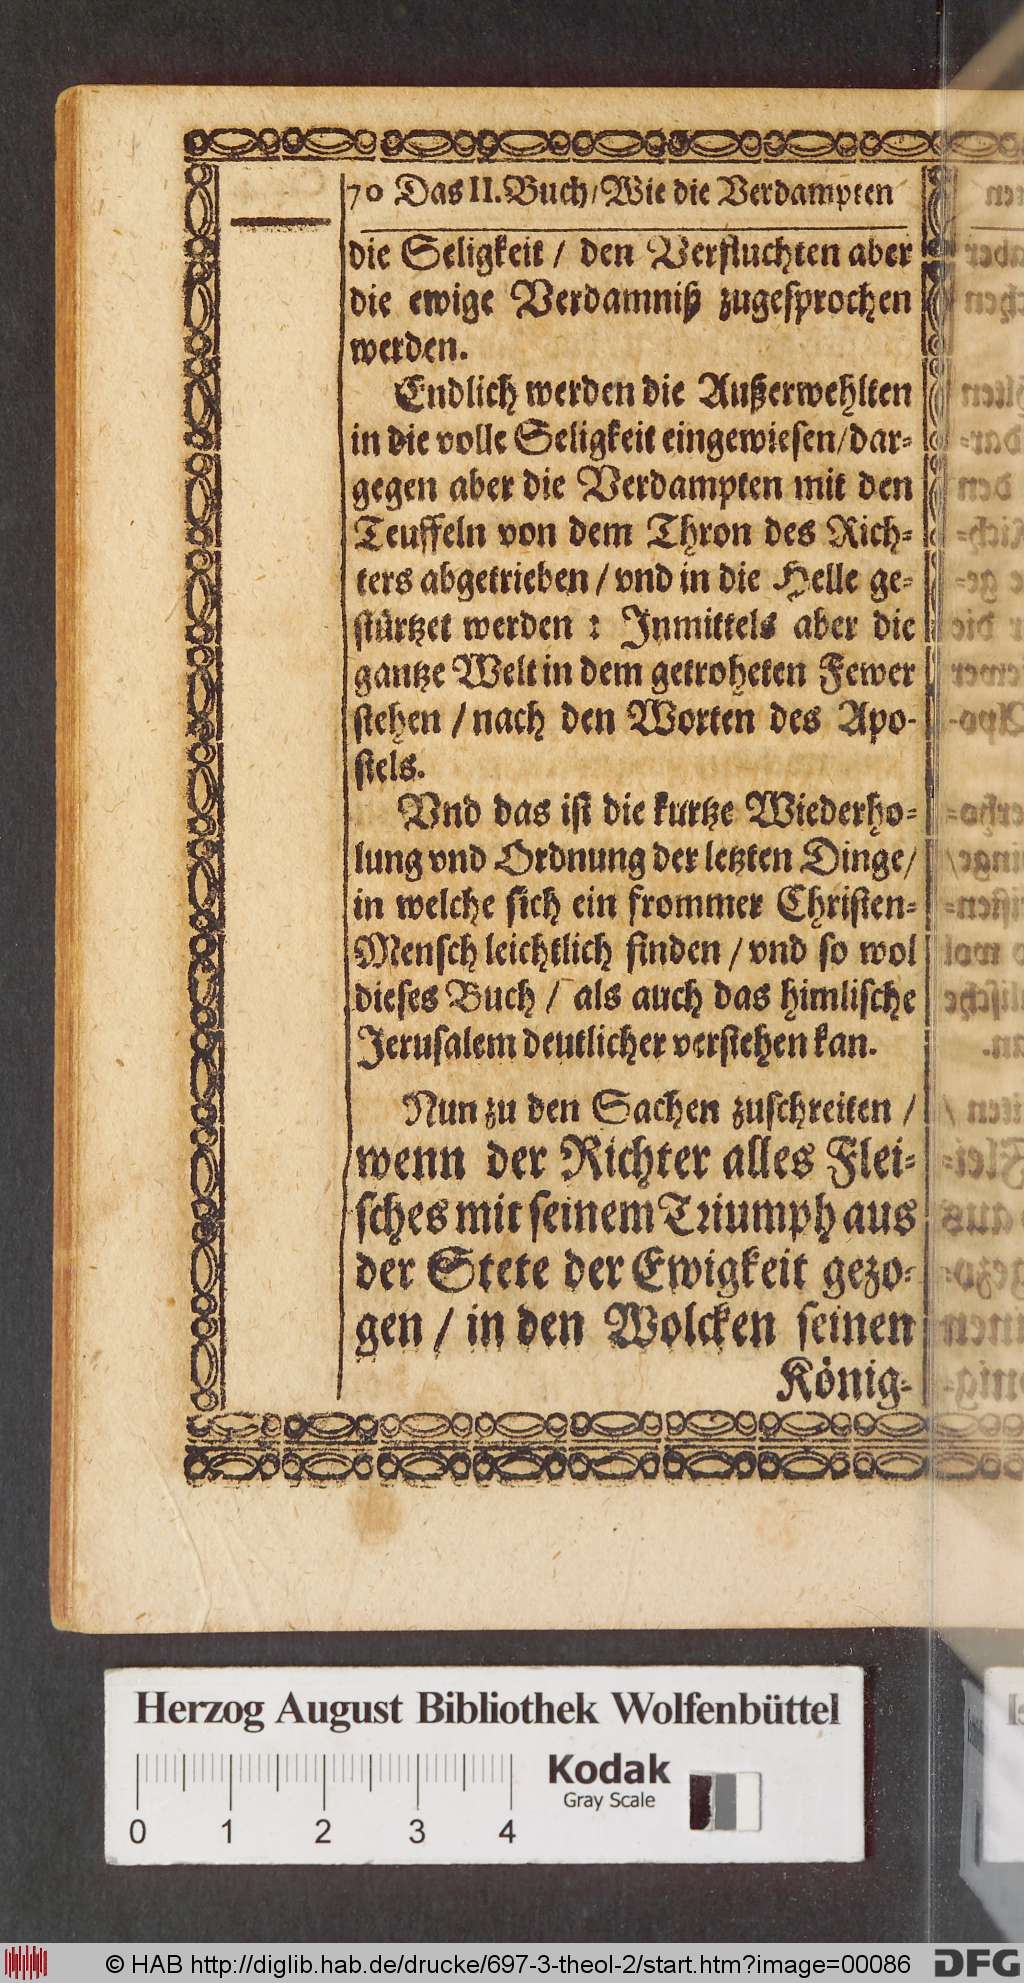 70 Das II. Buch / Wie die Verdampten
die Seligkeit / den Verfluchten aber
die ewige Verdamniß zugesprochen
werden.
Endlich werden die Außerwehlten
in die volle Seligkeit eingewiesen / dar-
gegen aber die Verdampten mit den
Teuffeln von dem Thron des Rich-
ters abgetrieben / vnd in die Helle ge-
stürtzet werden : Inmittels aber die
gantze Welt in dem getroheten Fewer
stehen / nach den Worten des Apo-
stels.
Vnd das ist die kurtze Wiederho-
lung vnd Ordnung der letzten Dinge /
in welche sich ein frommer Christen-
Mensch leichtlich finden / vnd so wol
dieses Buch / als auch das himlische
Jerusalem deutlicher verstehen kan.
Nun zu den Sachen zuschreiten /
wenn der Richter alles Flei-
sches mit seinem Triumph aus
der Stete der Ewigkeit gezo-
gen / in den Wolcken seinen
König-
Herzog August Bibliothek Wolfenbüttel
Kodak
Gray Scale
0 1 2 3 4
© HAB http://diglib.hab.de/drucke/697-3-theol-2/start.htm?image=00086
DFG